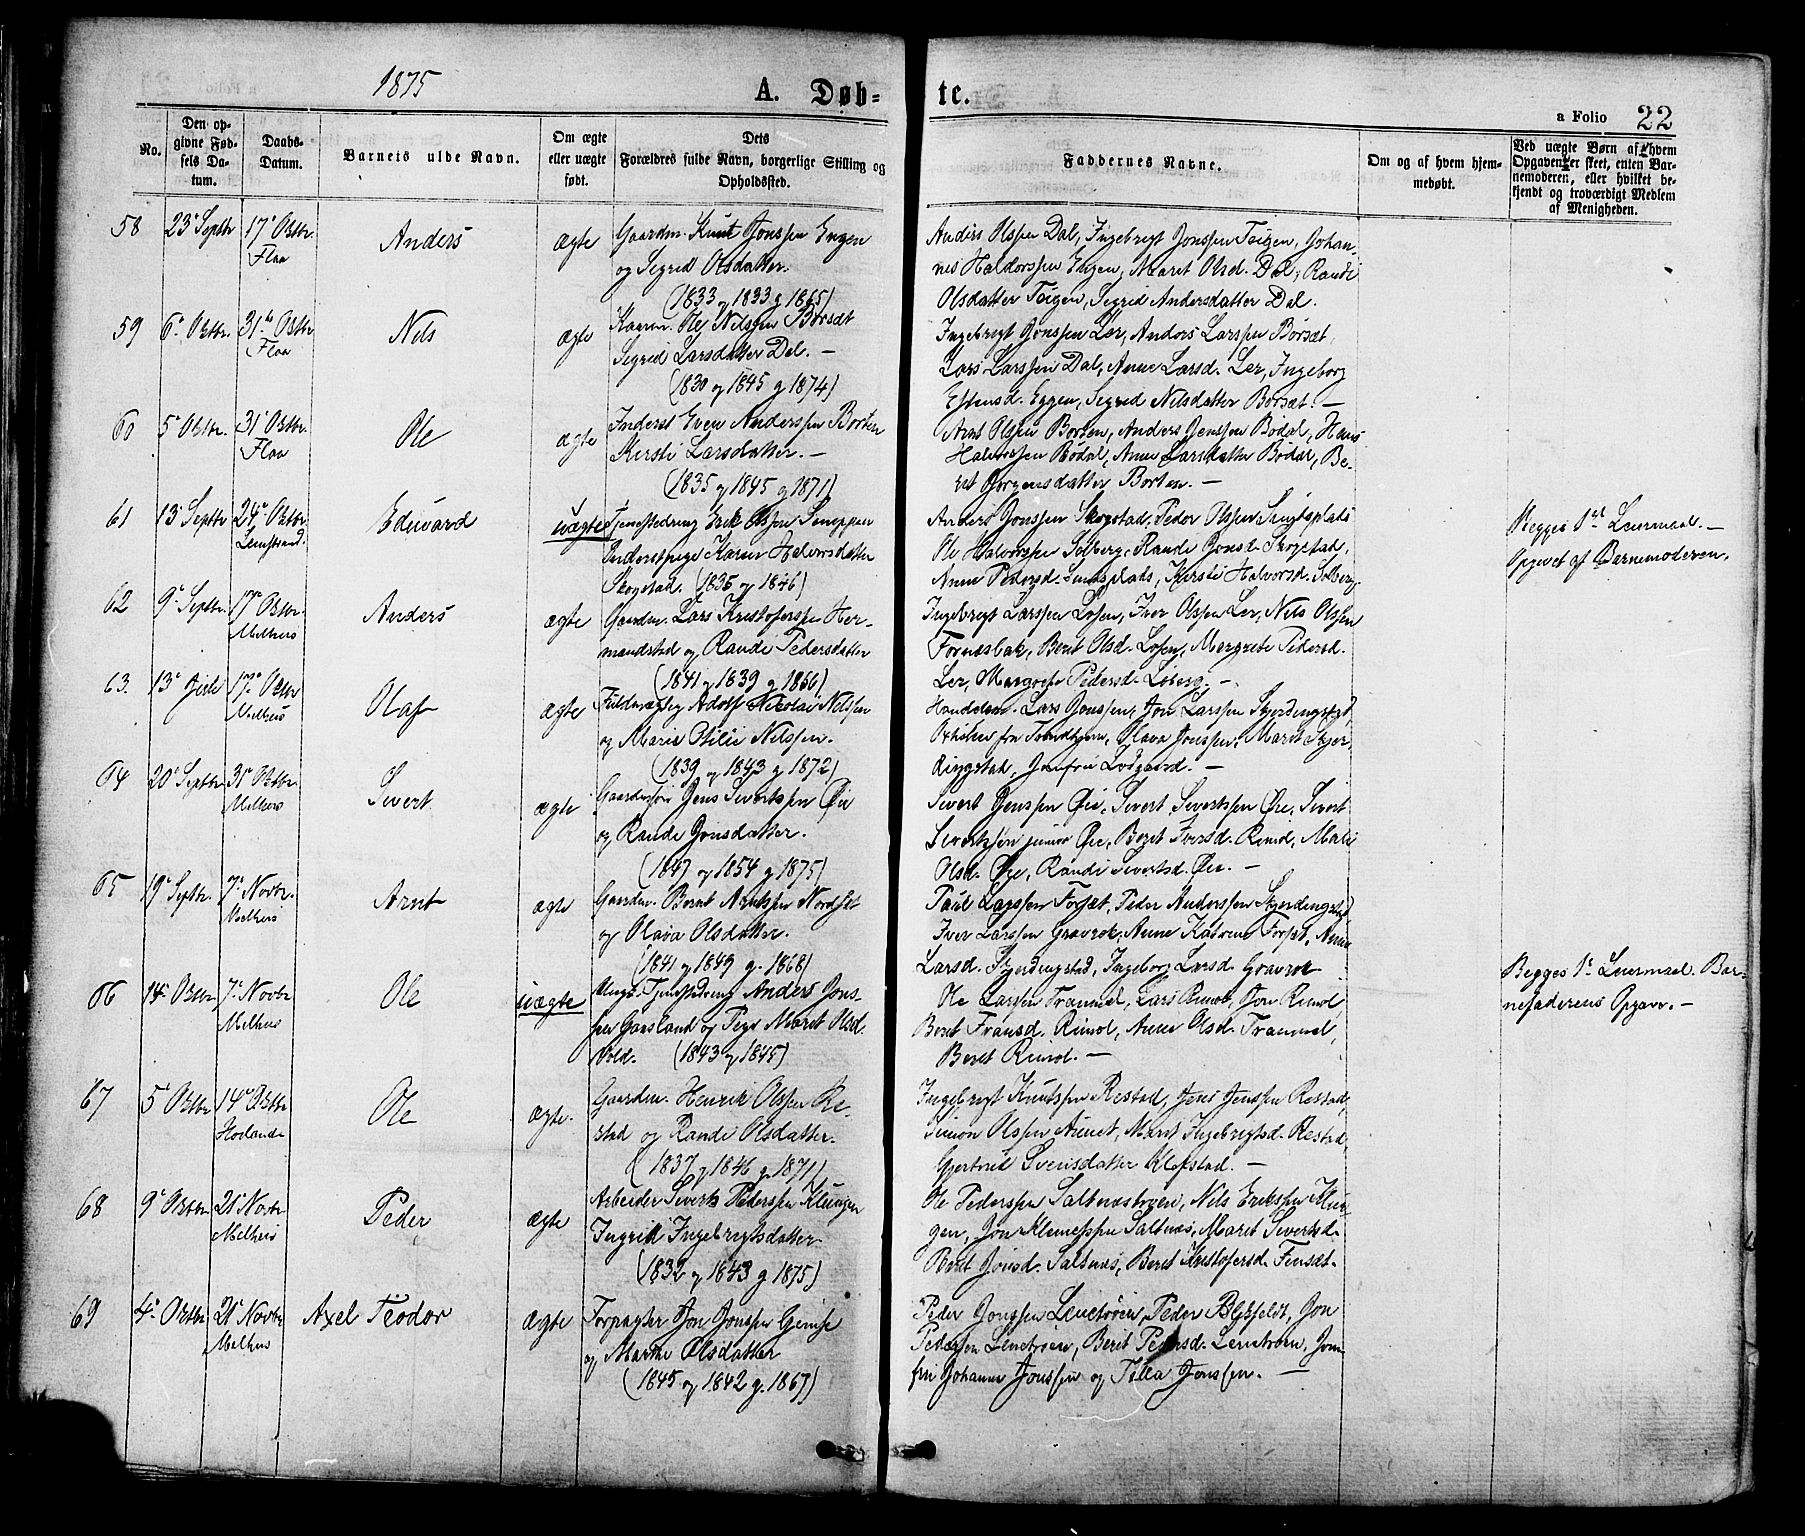 1875
A. Døb- te.
a Folio 22
No.
Den op-
givne Fød-
sels Da-
tum.
Daabs-
Datum.
Barnets fulde Navn.
Om ægte
eller uægte
født.
Dets
Forældres fulde Navn, borgerlige Stilling og
Opholdssted.
Faddernes Navne.
Om og af hvem hjem-
medøbt.
Ved uægte Børn af hvem
Opgaven er skeet, enten Bar-
nemoderen, eller hvilket be-
kjendt og troværdigt Medlem
af Menigheden.
58 23 Septbr 17 Oktbr. Flaa Anders ægte
Gaardm. Knut Jonssen Engen
og Sigrid Olsdatter.
(1833 og 1833 g 1865)
Anders Olssen Dal, Ingebrigt Jonssen Teigen, Johan-
nes Haldorssen Engen, Maret Olsd. Dal, Randi
Olsdatter Teigen, Sigrid Andersdatter Dal.
59 6 Oktbr. 31te Oktbr Flaa Nils ægte
Kaarm. Ole Nilssen Børsæt
Sigrid Larsdatter Dal. —
(1830 og 1845 g 1874)
Ingebrigt Jonssen Ler, Anders Larssen Børsæt,
Lars Larssen Dal, Anne Larsd. Ler, Ingeborg
Estensd. Eggen, Sigrid Nilsdatter Børsæt. —
60 5 Oktbr. 31 Oktbr. Flaa Ole ægte
Inderst Even Anderssen Borten
Kirsti Larsdatter. —
(1835 og 1845 g 1871)
Arnt Olssen Borten, Anders Jenssen Bødal, Hans
Halvorssen Bødal, Anne Larsdatter Bødal, Be-
ret Jørgensdatter Borten. —
61 13 Septbr 24 Oktbr. Leinstrand. Edevard uægte
Tjenestedreng Erik Olssen
Inderstpige Karen Halvorsdatter
Skogstad. (1835 og 1846)
Anders Jonssen Skogstad, Peder Olssen
Ole Halvorssen Solberg, Randi Jonsd. Skogstad,
Anne Pedersd. Kirsti Halvorsd. Solberg
Begges 1st Leiermaal. —
Opgivet af Barnemoderen.
62 9 Septbr. 17 Oktbr Melhus Anders ægte
Gaardm. Lars Kristofersen Her-
mandstad og Randi Pedersdatter
(1841 og 1839 g 1866)
Ingebrigt Larssen Losen, Iver Olssen Ler, Nils Olssen
Fornæsbak, Berit Olsd. Losen, Margrete Pedersd.
Ler, Margrete Pedersd. Loberg. —
63. 13 Juli 17 Oktbr Melhus Olaf ægte
Fuldmægtig Adolf Nikolai Nilssen
og Marie Otilie Nilssen.
(1839 og 1843 g 1872)
Handelsm. Lars Jonssen, Jon Larssen Skjerdingstad,
fra Trondhjem, Olava Jonssen, Maret Skjer-
dingstad, Jomfru Lodgaard. —
64 20 Septbr 31 Oktbr Melhus Sivert ægte
Gaardmand Jens Sivertssen Øie
og Randi Jonsdatter.
(1847 og 1854 g 1875)
Sivert Jenssen Øie, Sivert Sivertssen Øie, Sivert
Sivertssen junior Øie, Beret Iversd. Rimol, Mali
Olsd. Øie, Randi Sivertsd. Øie. —
65 19 Septbr. 7 Novbr. Melhus Arnt ægte
Gaardm. Bernt Arntssen Nordset
og Olava Olsdatter.
(1841 og 1849 g. 1868)
Paul Larssen Forset, Peder Anderssen Skjerdingstad,
Iver Larssen Gravrok, Anne Katrine Forset, Anne
Larsd. Skjerdingstad, Ingeborg Larsd. Gravrok
66 14 Oktbr 7 Novbr Melhus Ole uægte
Ungk. Tjenestedreng Anders Jons-
sen Gaasland og Pige Maret Olsd.
Vold. (1843 og 1845)
Ole Larsen Trammel, Lars Rimol, Jon Rimol
Beret Fransd. Rimol, Anne Olsd. Trammel,
Beret Rimol. —
Begges 1st Leiermaal. Bar-
nefaderens Opgave. —
67 5 Oktbr 14 Oktbr Hølande Ole ægte.
Gaardm. Henrik Olssen Re-
stad og Randi Olsdatter.
(1837 og 1846 g. 1871)
Ingebrigt Knutssen Restad, Jens Jenssen Restad,
Simon Olssen Aunet, Marit Ingebrigtsd. Restad,
Gjertrud Svensdatter Klefstad. —
68 9 Oktbr. 21 Novbr Melhus Peder ægte
Arbeider Sivert Pederssen Klungen
Ingrid Ingebrigtsdatter
(1832 og 1843 g 1875)
Ole Pederssen Saltnæstrøen, Nils Erikssen Klun-
gen, Jon Klemetssen Saltnæs, Maret Sivertsd.
Beret Jonsd. Saltnæs, Beret Kristofersd. Finsæt.
69 4 Oktbr 21 Novbr Melhus Axel Teodor ægte
Forpagter Jon Jonssen Gimse
og Marthe Olsdatter
(1845 og 1842 g. 1867)
Peder Jonssen Lenetrøen, Peder Blekfeldt, Jon
Pederssen Lenetrøen, Beret Pedersd. Lenetrøen, Jom-
fru Johanne Jonssen og Tella Jonssen. —